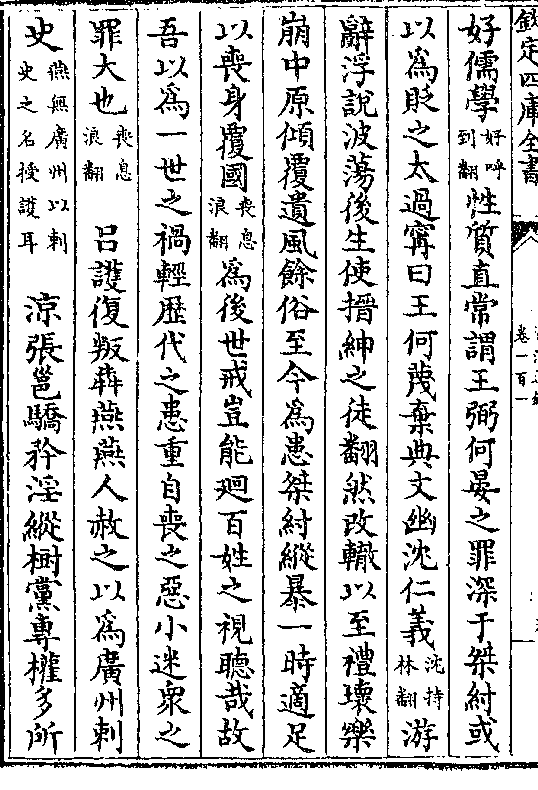 欽定四庫全書
卷一百一
好儒學好呼到翻性質直常謂王弼何晏之罪深于桀紂或
以為貶之太過寗曰王何蔑棄典文幽沈仁義沈持林翻游
辭浮說波蕩後生使搢紳之徒翻然改轍以至禮壞樂
崩中原傾覆遺風餘俗至今為患桀紂縱暴一時適足
以喪身覆國喪息浪翻為後世戒豈能廻百姓之視聽哉故
吾以為一世之禍輕歷代之患重自喪之惡小迷衆之
罪大也喪息浪翻 呂護復叛犇燕燕人赦之以為廣州刺
史燕無廣州以刺史之名授護耳 涼張邕驕矜淫縱樹黨專權多所